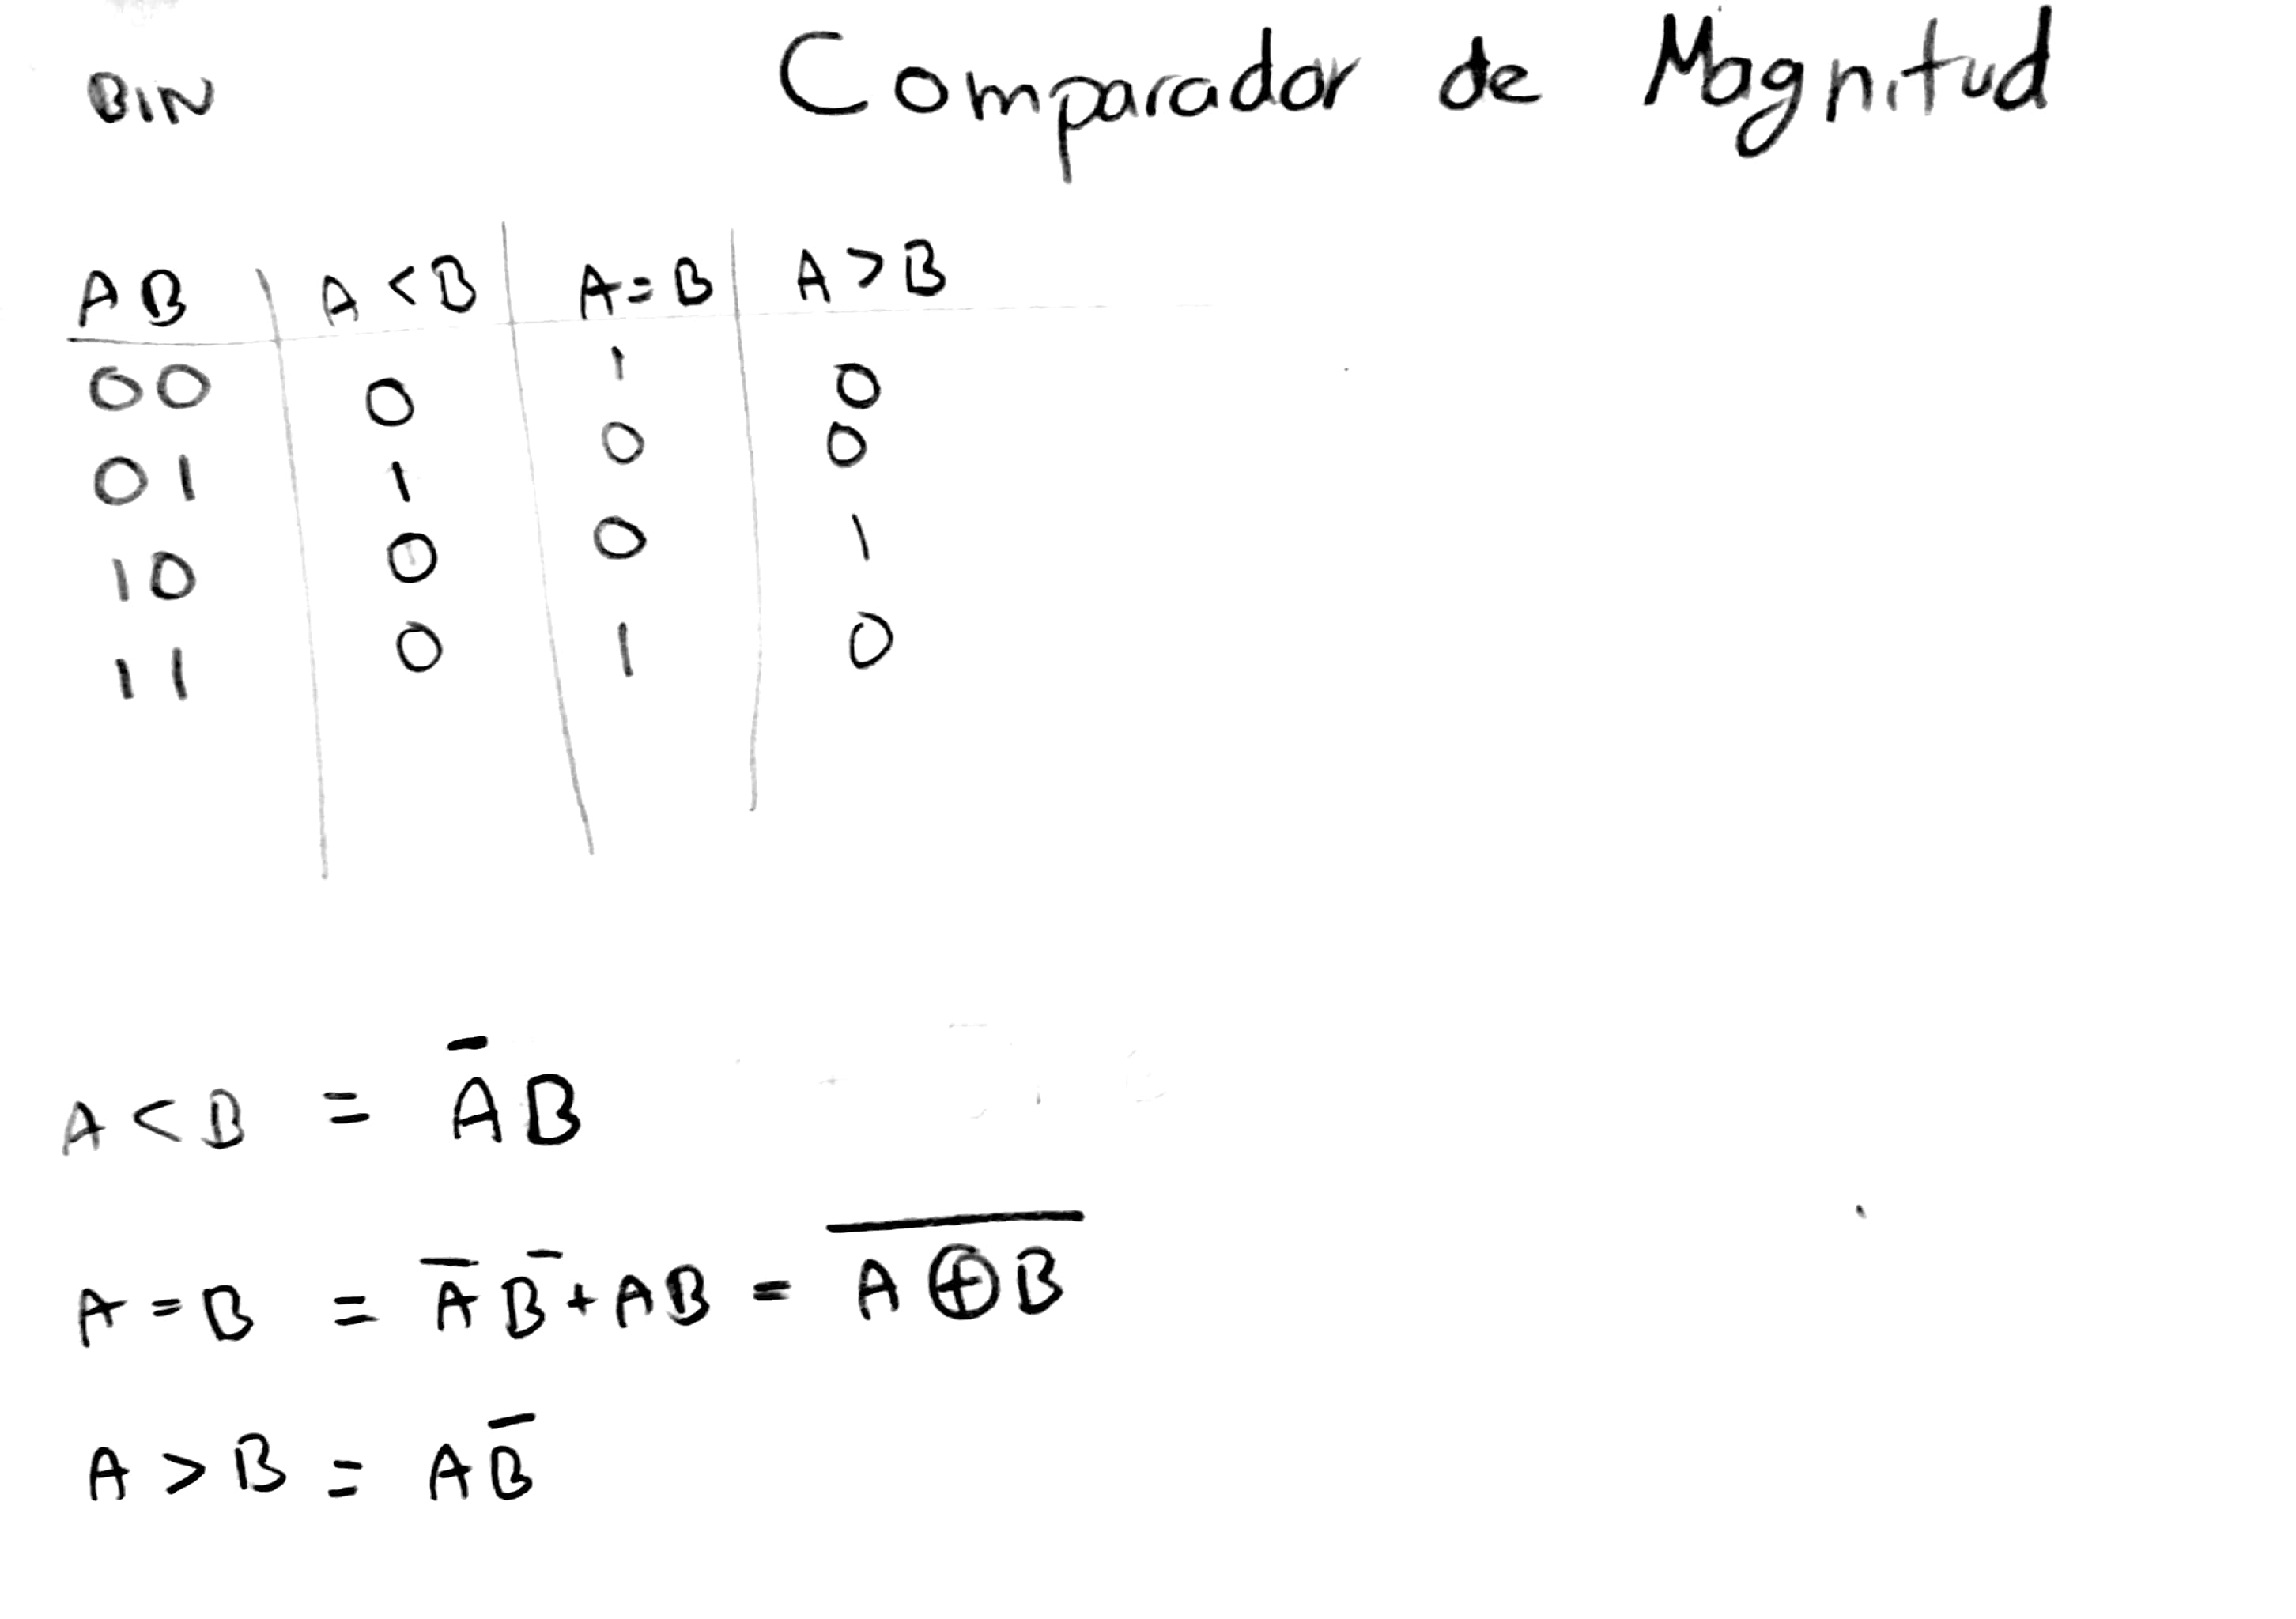 BIN Comparador de Magnitud
A B | A < B | A = B | A > B
00 0 1 0
01 1 0 0
10 0 0 1
11 0 1 0
A < B = A̅B
A = B = A̅ B̅ + AB = A̅ ⊕̅ B̅
A > B = AB̅